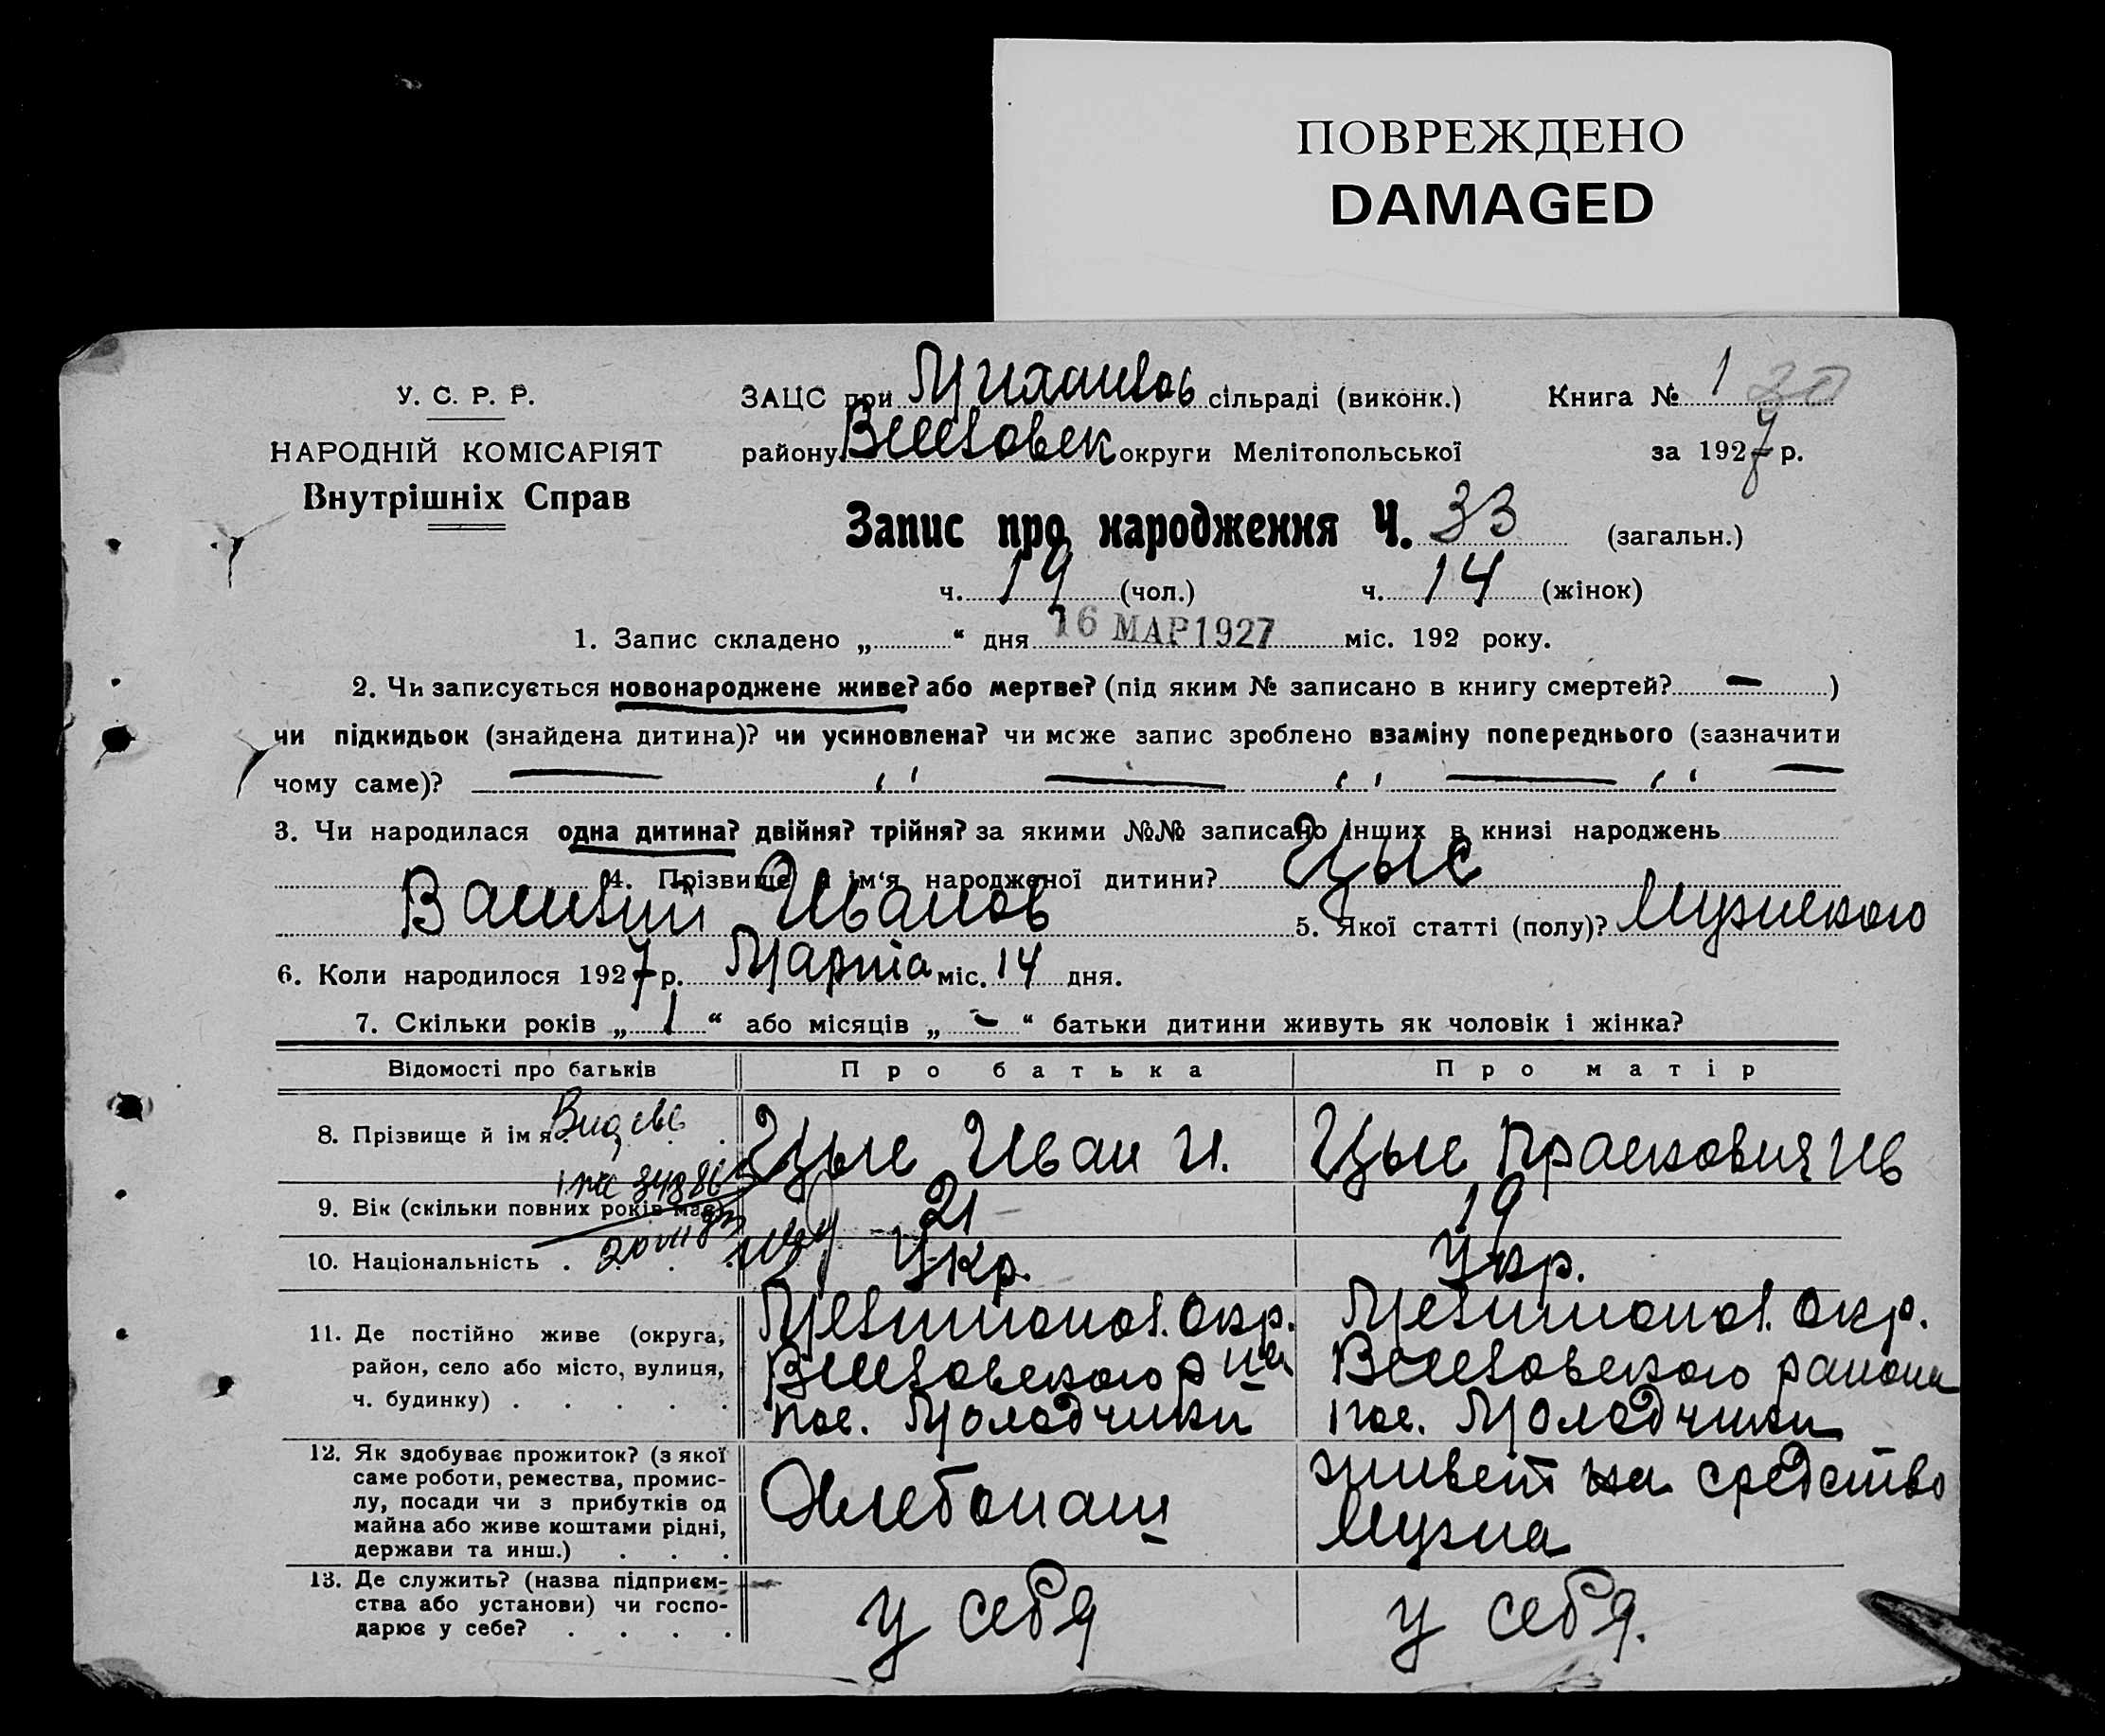 ПОВРЕЖДЕНО
DAMAGED
У. С. Р. Р.
НАРОДНІЙ КОМІСАРІЯТ
Внутрішніх Справ
ЗАЦС при Михайлов сільраді (виконк.)
району Веселовск округи Мелітопольської
Книга № 1 20
за 1927 р.
Запис про народження Ч. 33 (загальн.)
ч. 19 (чол.) ч. 14 (жінок)
1. Запис складено „ “ дня 16 МАР 1927 міс. 192 року.
2. Чи записується новонароджене живе? або мертве? (під яким № записано в книгу смертей? — )
чи підкидьок (знайдена дитина)? чи усиновлена? чи може запис зроблено взаміну попереднього (зазначити
чому саме)? — ‚‚ — ‚‚ — ‚‚ —
3. Чи народилася одна дитина? двійня? трійня? за якими №№ записано інших в книзі народжень
4. Прізвище й ім‘я народженої дитини? Цыс
Василий Иванов 5. Якої статті (полу)? Мужского
6. Коли народилося 1927 р. Марта міс. 14 дня.
7. Скільки років „ 1 “ або місяців „ - “ батьки дитини живуть як чоловік і жінка?
Відомості про батьків Про батька Про матір
8. Прізвище й імя Цыс Иван И. Цыс Прасковия Ив
9. Вік (скільки повних років має) 21 19
10. Національність . . . . Укр. Укр.
11. Де постійно живе (округа,
район, село або місто, вулиця,
ч. будинку) . . . . .
Мелитопол. окр.
Веселовского р на
пос. Молодчики
Мелитопол. окр.
Веселовского района
пос. Молодчики
12. Як здобуває прожиток? (з якої
саме роботи, ремества, промис-
лу, посади чи з прибутків од
майна або живе коштами рідні,
держави та инш.) . . .
Хлебопаш
живет на средство
Мужа
13. Де служить? (назва підприєм-
ства або установи) чи госпо-
дарює у себе? . . . .
у себя
у себя.